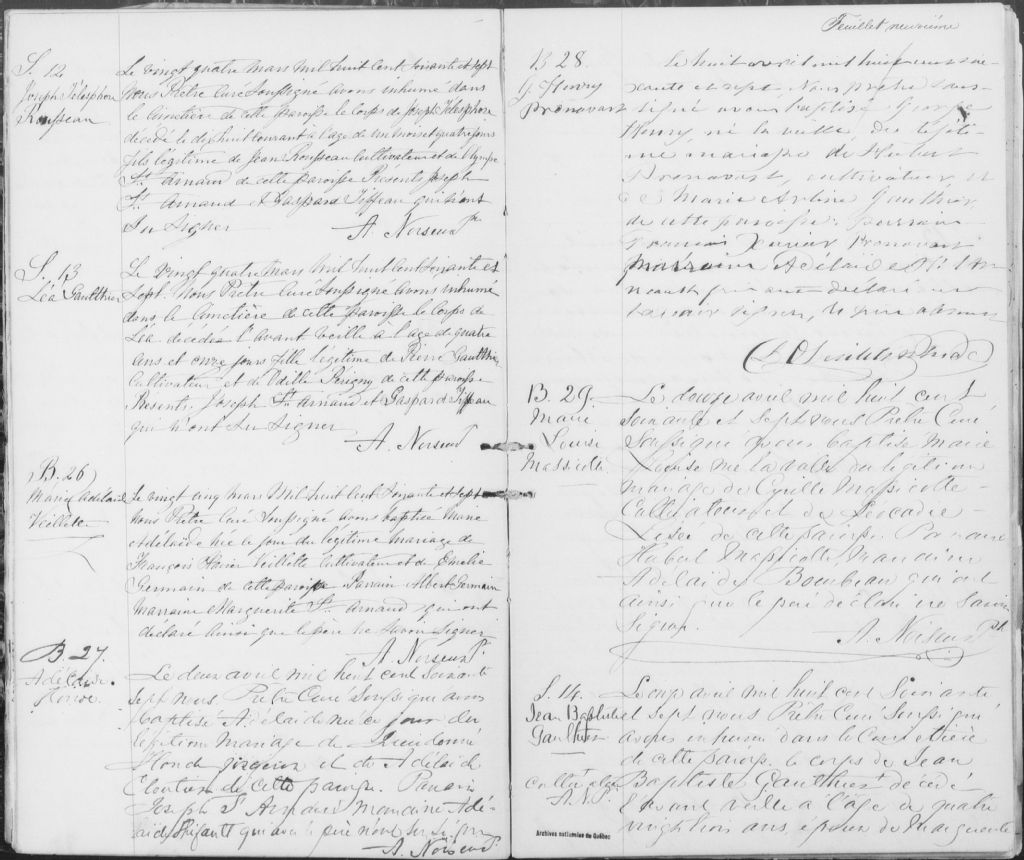 S. 12
Joseph Télesphore
Rousseau
Le vingt quatre mars mil huit cent soixante et sept
Nous Prêtre Curé soussigné avons inhumé dans
le cimetière de cette paroisse le corps de Joseph Télesphore
décédé le dix huit courant à l'age de un mois et quatre jours
fils légitime de Jean Rousseau Cultivateur et de Olympe
St. Arnaud de cette paroisse Présents Joseph
St. Arnaud et Gaspard Tiffeau qui n'ont
su signer
A. Noiseux Ptre
S. 13
Léa Gaulthier
Le vingt quatre mars mil huit cent soixante et
sept. Nous Prêtre Curé soussigné avons inhumé
dans le cimetière de cette paroisse le corps de
Léa décédée l'avant veille à l'age de quatre
ans et onze jours fille légitime de Pierre Gaulthier
Cultivateur et de Odille Périgny de cette paroisse
Présents Joseph St. Arnaud et Gaspard Tiffeau
qui n'ont su signer
A. Noiseux
(B. 26)
Marie Adélaïde
Veillette
Le vingt cinq mars mil huit cent soixante et sept
Nous Prêtre Curé soussigné avons baptisé Marie
Adélaïde née le jour du légitime mariage de
François Xavier Veillette Cultivateur et de Emélie
Germain de cette paroisse Parrain Albert Germain
Marraine Marguerite St. Arnaud qui ont
déclaré ainsi que le père ne savoir signer
A. Noiseux P.
B. 27.
Adélaïde
Le deux avril mil huit cent soixante
sept nous Prêtre Curé soussigné avons
baptisé Adélaïde née ce jour du
légitime mariage de Dieudonné
et de Adélaïde
de cette paroisse. Parrain
Joseph St Arnaud Marraine Adé-
laide qui avec le père n'ont su signer
A. Noiseux P.
Feuillet neuvième
B 28.
G. Henry
Pronovost
Le huit avril mil huit cent soi-
xante et sept. Nous prêtre sous-
signé avons baptisé George
Henry né la veille du légiti-
me mariage de Hubert
Pronovost, cultivateur et
de Marie Gauthier
de cette paroisse. parrain
François Xavier Pronovost
marraine Adélaïde St. Ar-
neault qui ont déclaré ne
savoir signer, le père absent
B. 29.
Marie
Louise
Massicotte
Le douze avril mil huit cent
soixante et sept nous Prêtre Curé
soussigné avons baptisé Marie
Louise née la veille du légitime
mariage de Cyrille Massicotte
Cultivateur et de Léocadie
de cette paroisse. Parrain
Hubert Massicotte Marraine
Adélaïde Bourbeau qui ont
ainsi que le père déclaré ne savoir
signer.
A. Noiseux Pt.
S. 14.
Jean Baptiste
Gaulthier
cultivateur
A. N.
Le onze avril mil huit cent soixante
et sept nous Prêtre Curé soussigné
avons inhumé dans le Cimetière
de cette paroisse le corps de Jean
Baptiste Gaulthier décédé
l'avant veille à l'age de quatre
vingt trois ans, époux de Marguerite
Archives nationales du Québec